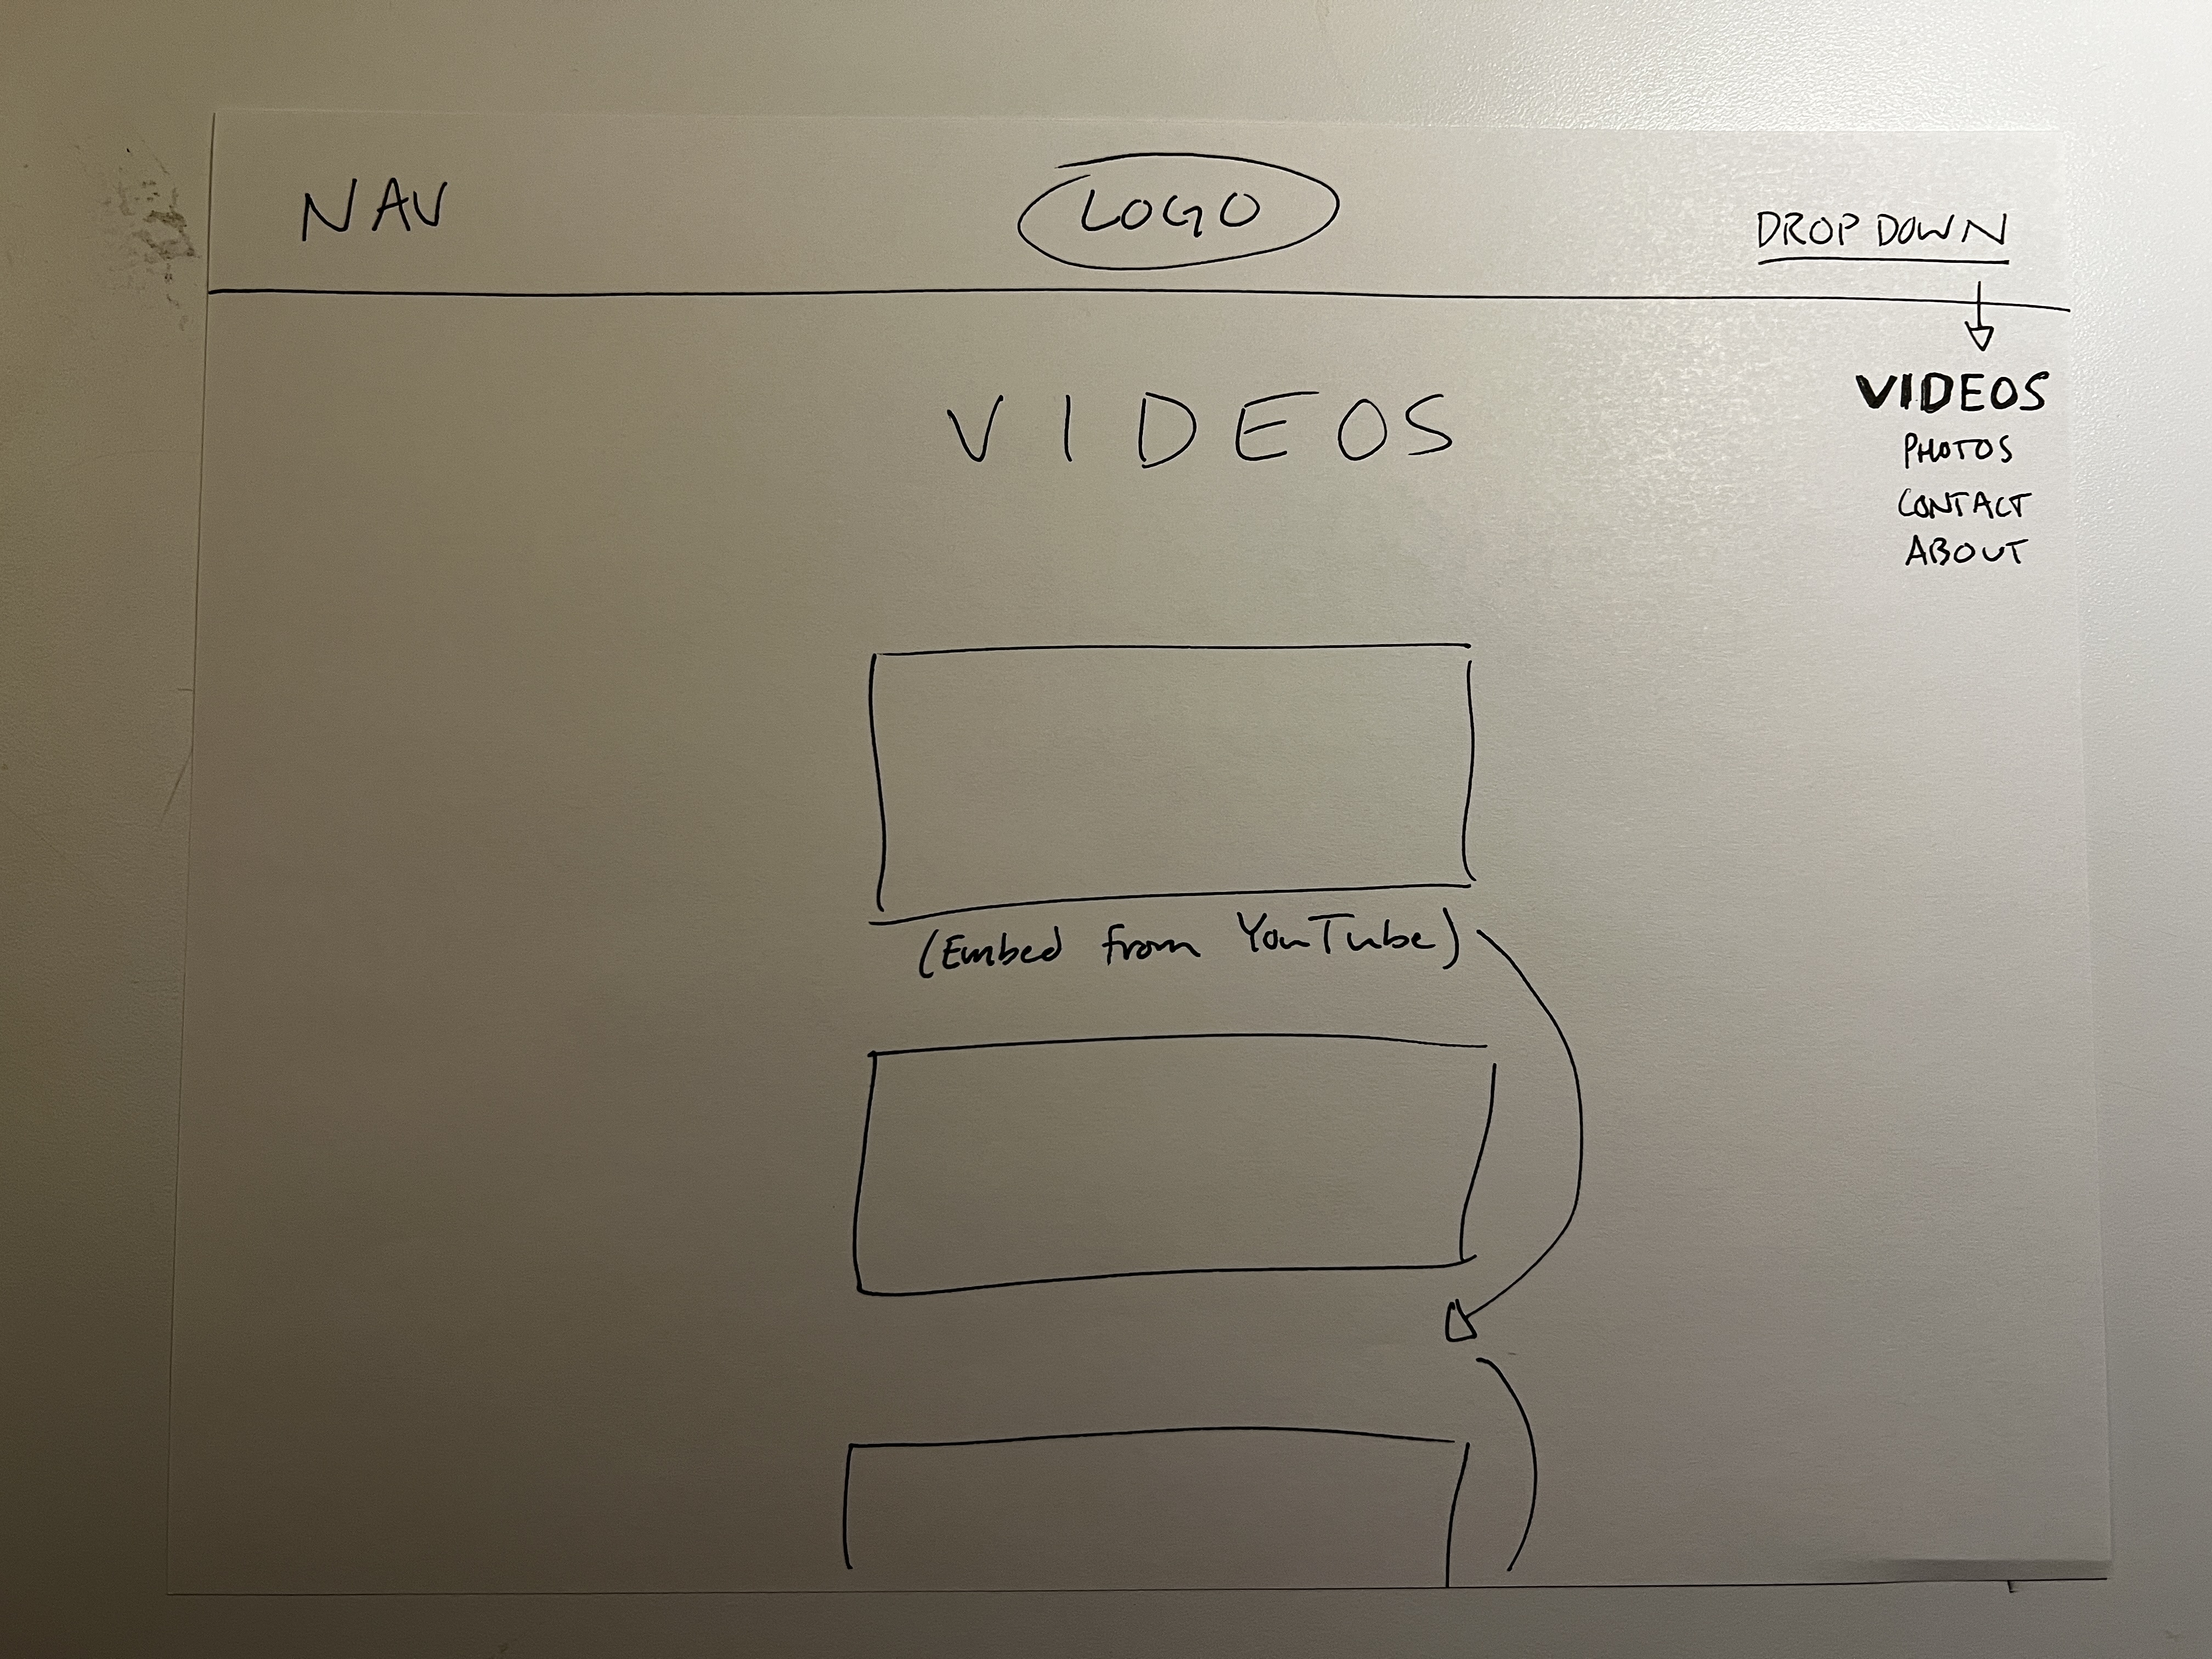 NAV
LOGO
DROP DOWN
VIDEOS
VIDEOS
PHOTOS
CONTACT
ABOUT
(Embed from YouTube)